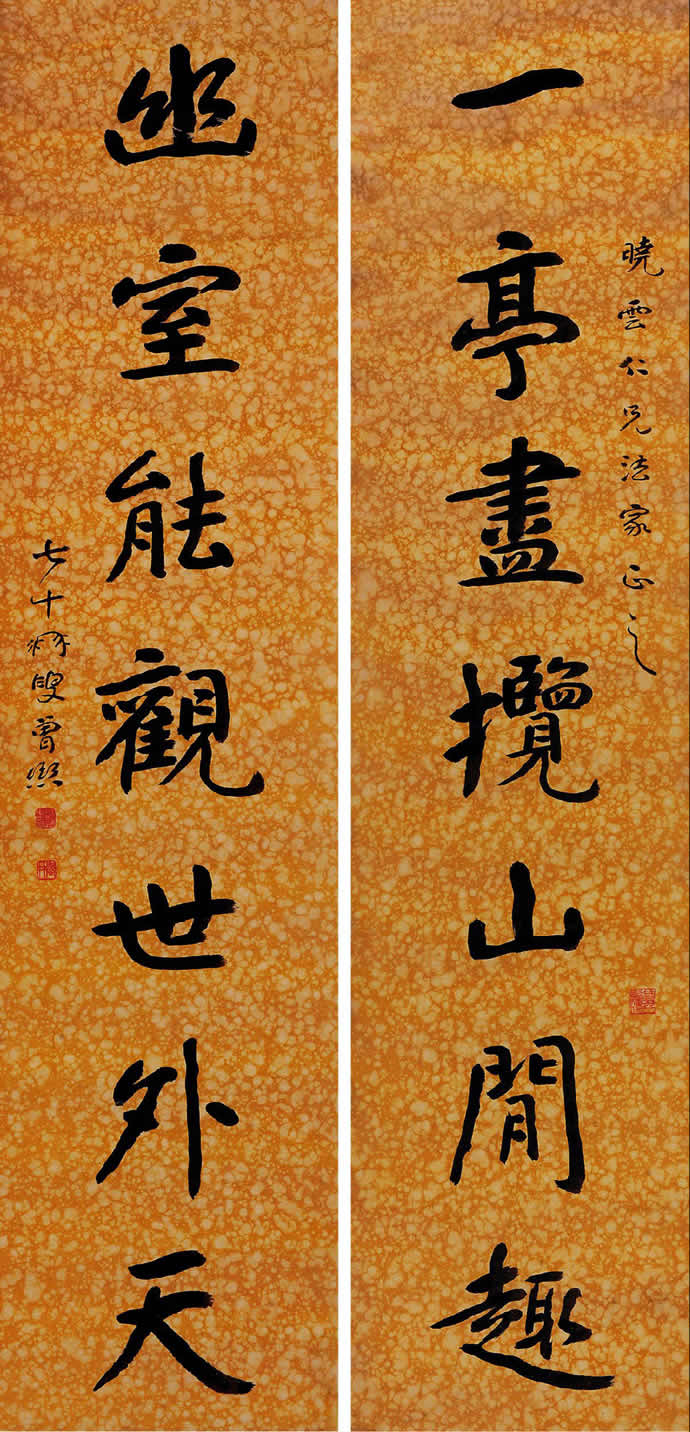 晓雲仁兄法家正之
一亭盡攬山閒趣
幽室能觀世外天
七十 叟曾熙